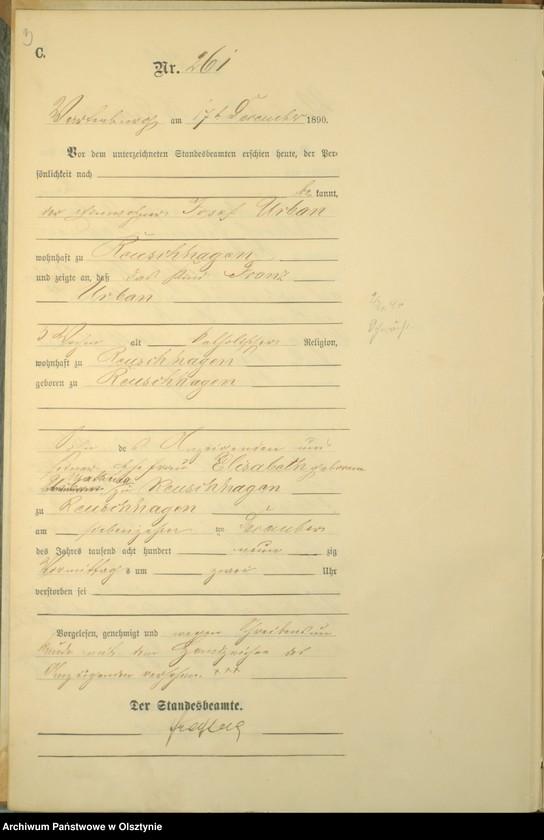 3
C.
Nr. 261
Wartenburg am 17t December 1890.
Vor dem unterzeichneten Standesbeamten erschien heute, der Per-
sönlichkeit nach
be kannt,
der Einwohner Josef Urban
wohnhaft zu Reuschhagen
und zeigte an, daß das Kind Franz
Urban
alt katholischer Religion,
wohnhaft zu Reuschhagen
geboren zu Reuschhagen
Sohn des Anzeigenden und
seiner Ehefrau Elisabeth geborenen
zu Reuschhagen
zu Reuschhagen
am siebenzehn ten December
des Jahres tausend acht hundert neun zig
Vormittags um zwei Uhr
verstorben sei
Vorgelesen, genehmigt und wegen Schreibensun
kunde mit dem Handzeichen des
Anzeigenden versehen +++
Der Standesbeamte.
Archiwum Państwowe w Olsztynie